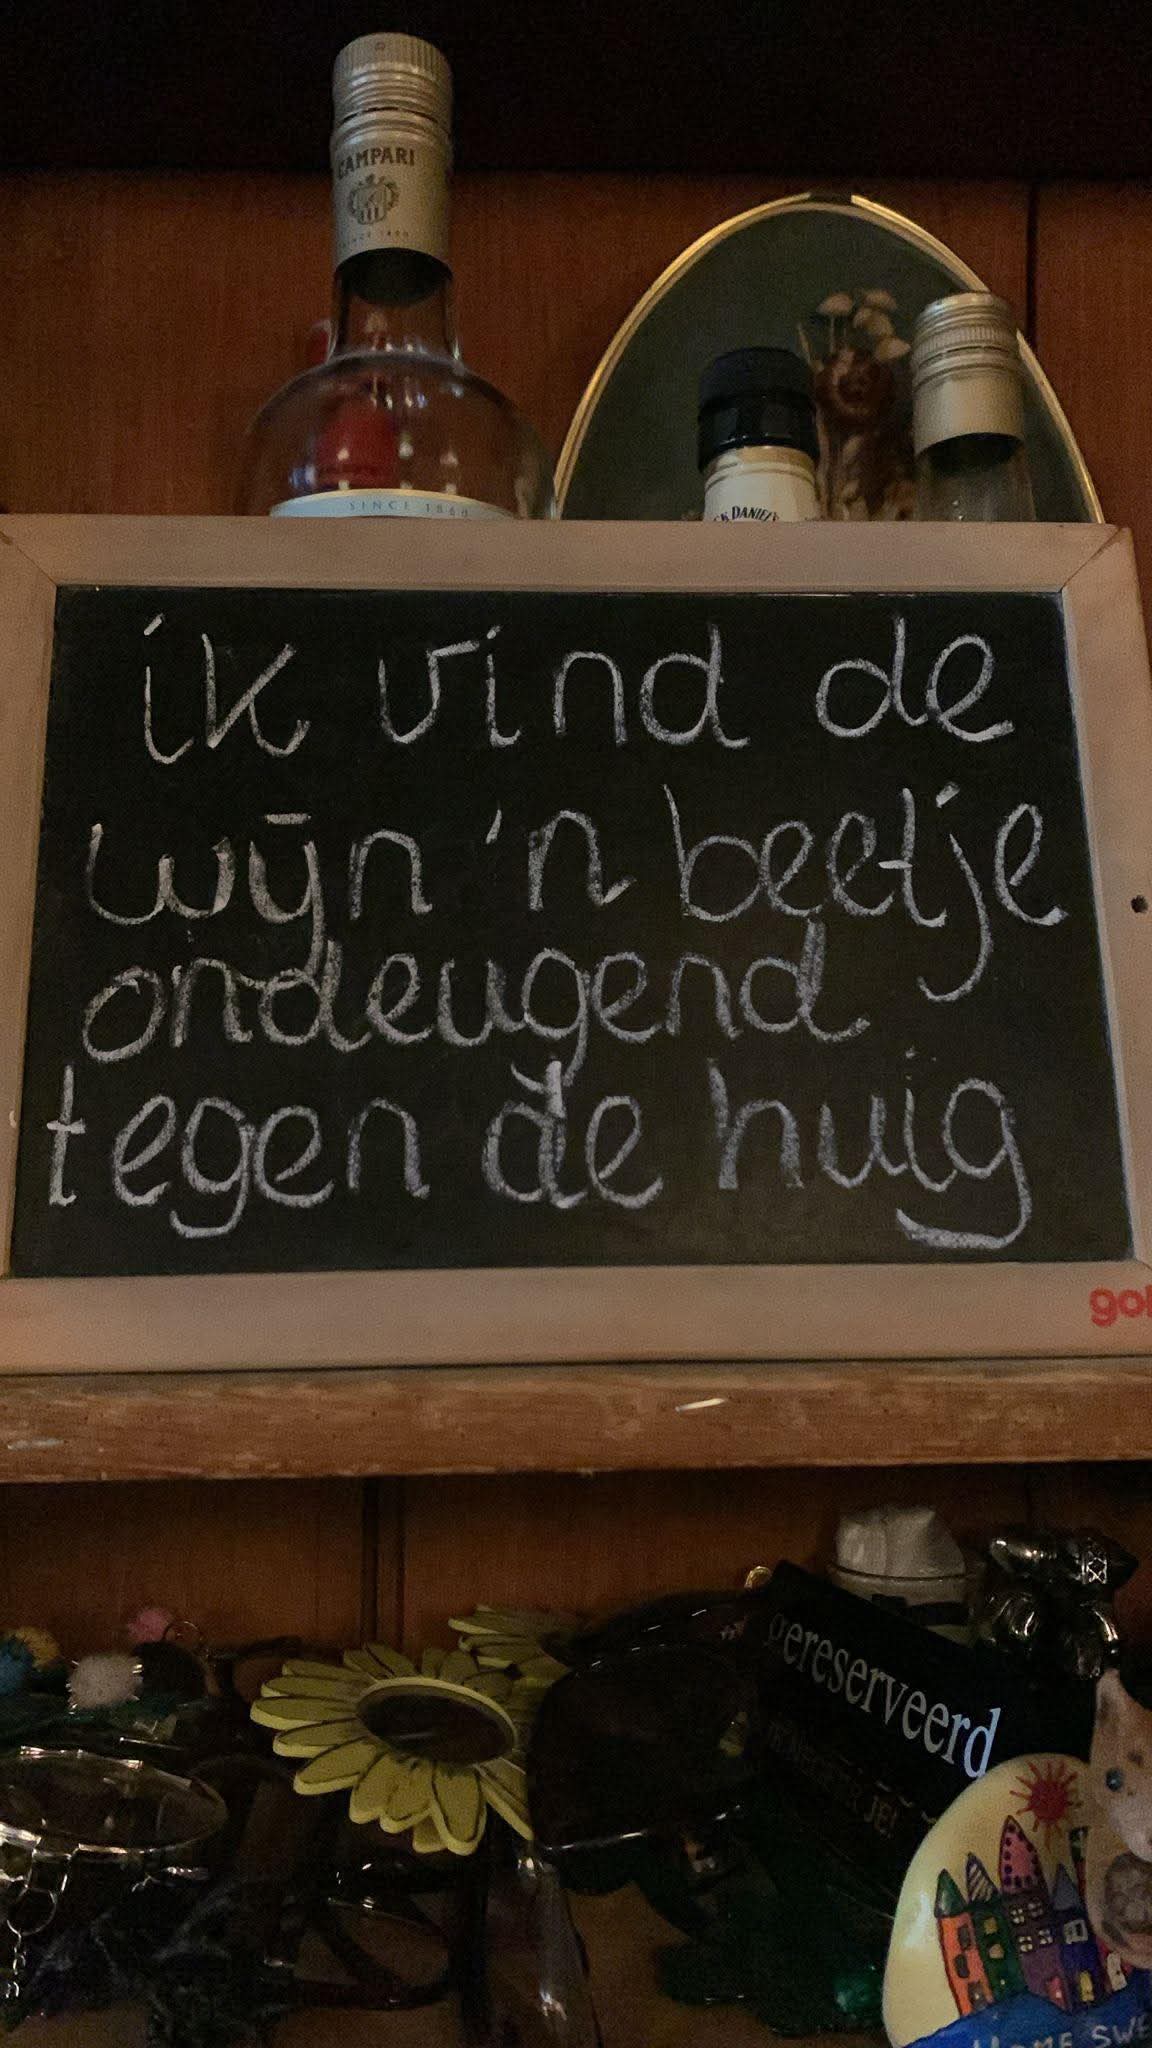 CAMPARI
SINCE 1860
SINCE 1860
CK DANIEL'S
ik vind de
wijn 'n beetje
ondeugend
tegen de huig
gol
gereserveerd
HOME SWE